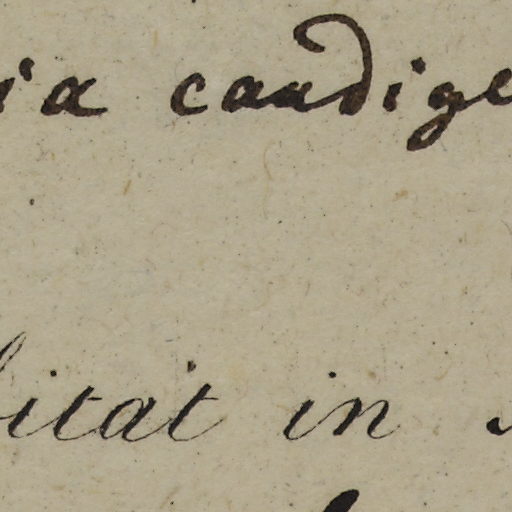 ia caudige
bitat in